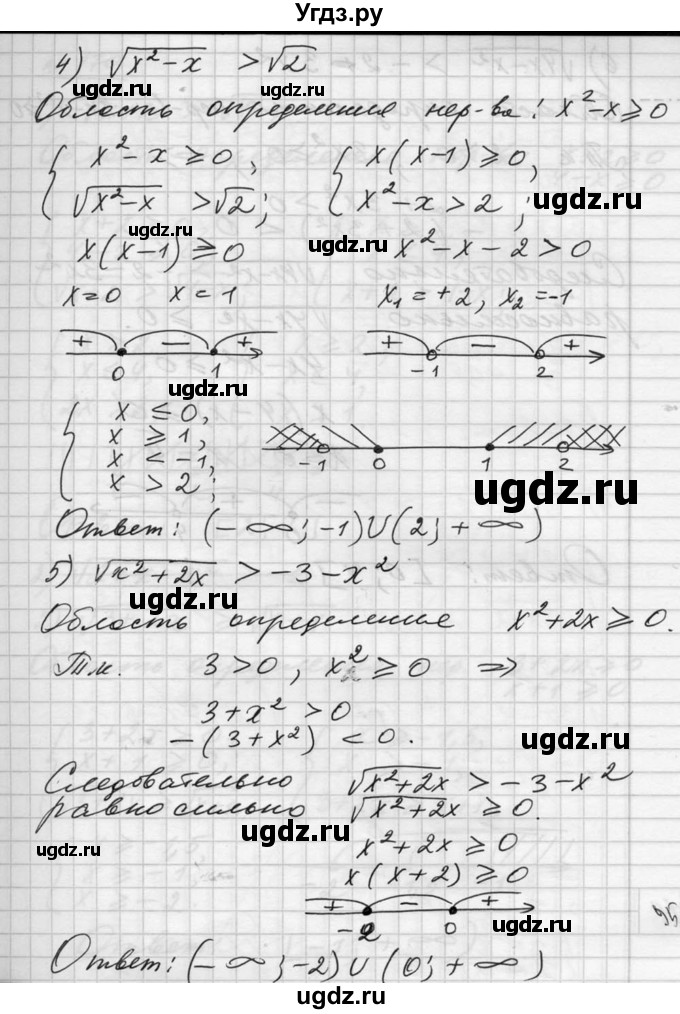 Угдз.ру
4) √(x²-x) > √2
ugdz.ru ugdz.ru
Область определения нер-ва: x²-x ≥ 0
{ x²-x ≥ 0, { x(x-1) ≥ 0,
√(x²-x) > √2; x²-x > 2; ugdz.ru
ugdz.ru
x(x-1) ≥ 0 ugdz.ru x²-x-2 > 0
x=0 x=1 x₁=+2, x₂=-1
+ - + + - +
0 1 -1 2
ugdz.ru
{ x ≤ 0,
x ≥ 1,
x < -1, -1 0 1 2
x > 2;
ugdz.ru
Ответ: (-∞; -1)∪(2; +∞)
5) √(x²+2x) > -3-x²
ugdz.ru
Область определения x²+2x ≥ 0.
Т.к. 3>0, x² ≥ 0 ⇒
ugdz.ru
3+x² > 0
-(3+x²) < 0.
ugdz.ru
Следовательно √(x²+2x) > -3-x²
равносильно √(x²+2x) ≥ 0.
ugdz.ru
x²+2x ≥ 0
ugdz.ru
x(x+2) ≥ 0
+ - +
-2 0
ugdz.ru
Ответ: (-∞; -2)∪(0; +∞)
ugdz.ru